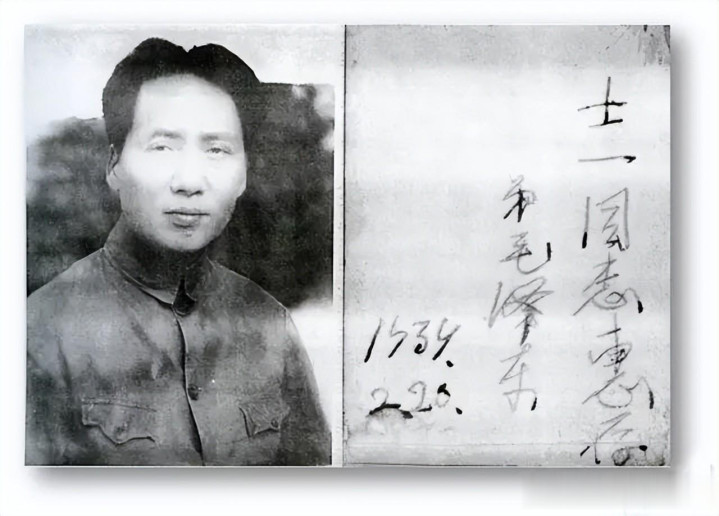 士一同志惠存
弟毛泽东
1939.
2.20.